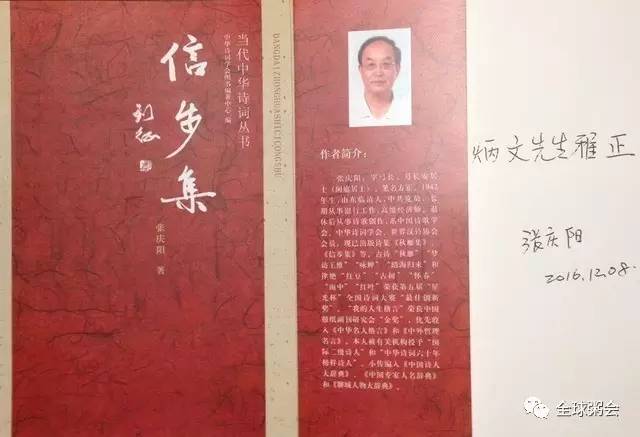 当代中华诗词丛书
中华诗词学会图书编著中心 编
DANGDAIZHONGHUASHICICONGSHU
信步集
刘征
张庆阳 著
作者简介：
张庆阳，字弓长，号长安居
年生，山东临清人，中共党员，长
期从事银行工作，高级经济师，退
休后从事诗歌创作，系中国诗歌学
会、中华诗词学会、世界汉诗协会
会员，现已出版诗集《秋雁集》、
《信步集》等，古诗“秋雁”“梦
访王维”“咏蝉”“踏海归来”和
律绝“红豆”“古树”“怀春”
“雨中”“红叶”荣获第五届“星
光杯”全国诗词大赛“最佳创新
奖”，“我的人生格言”荣获中国
入《中华名人格言》和《中外哲理
名言》。本人被有关机构授予“国
际二级诗人”和“中华诗词六十年
榜样诗人”，小传编入《中国诗人
大辞典》、《中国专家人名辞典》
和《聊城人物大辞典》。
炳文先生雅正
张庆阳
2016.12.08.
全球粥会